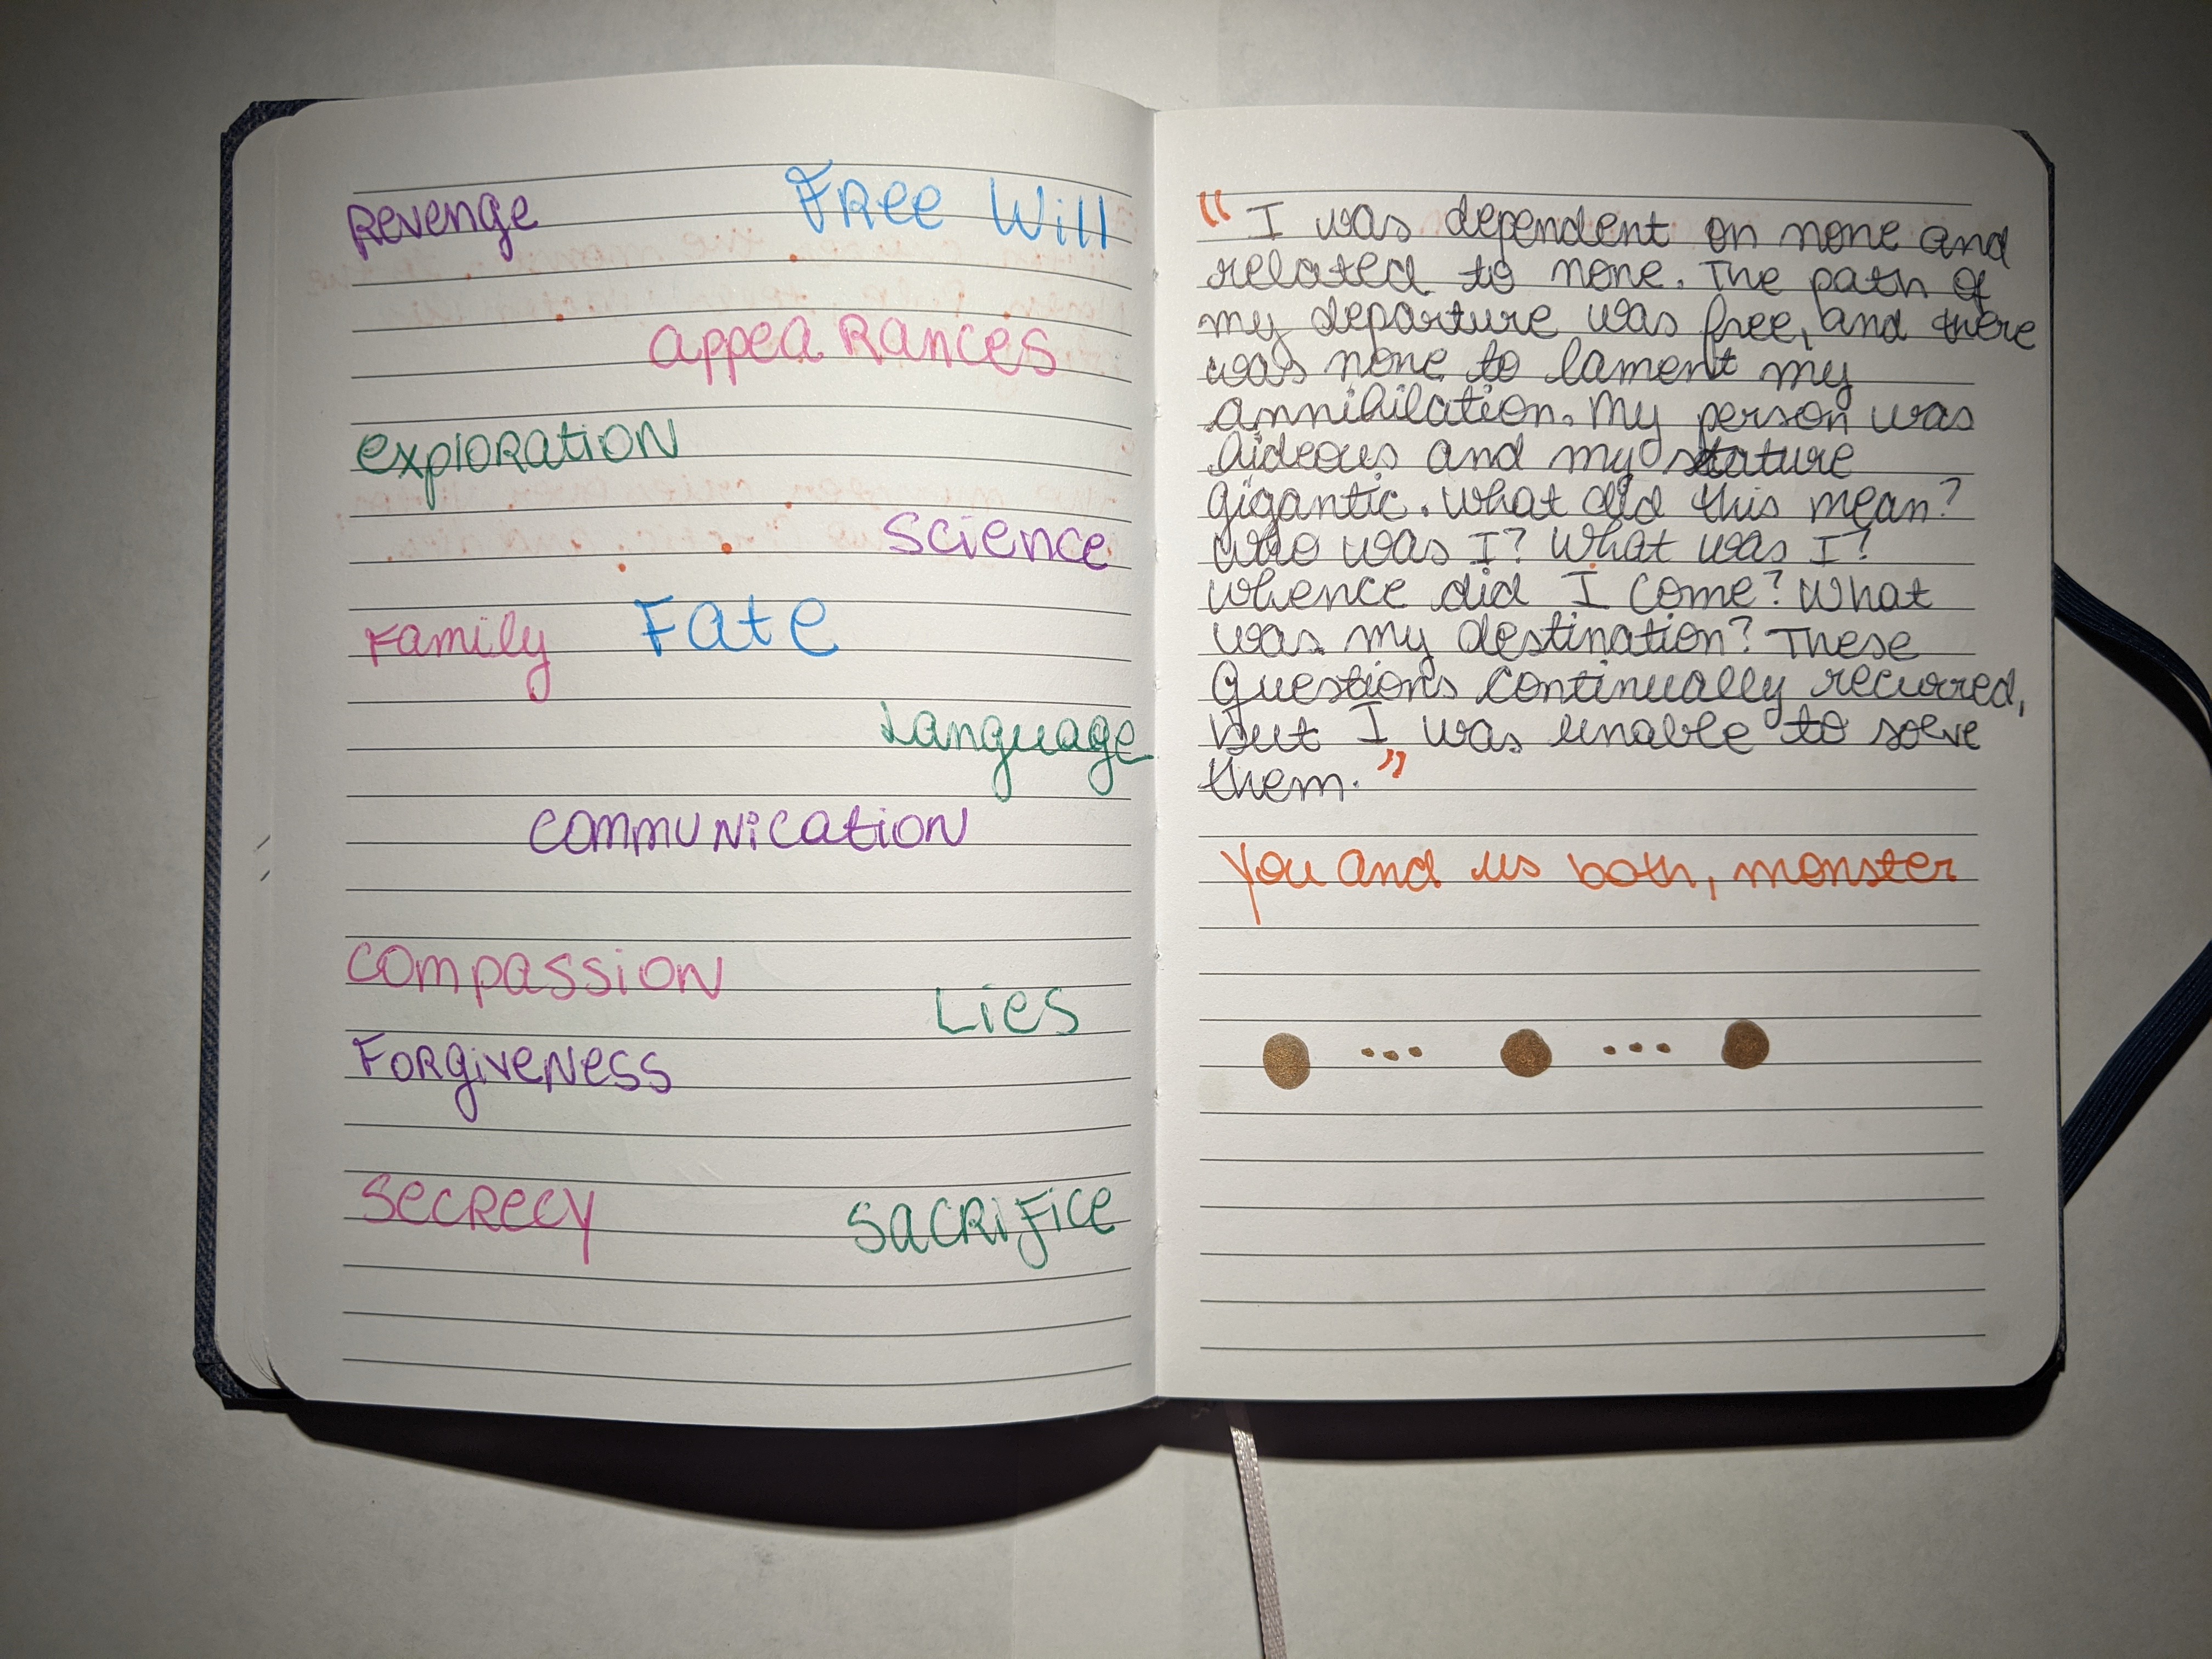 Revenge Free Will
appearances
exploration
Science
Family Fate
Language
communication
compassion
Lies
Forgiveness
Secrecy Sacrifice
"I was dependent on none and
related to none. The path of
my departure was free, and there
was none to lament my
annihilation. My person was
hideous and my stature
gigantic. What did this mean?
Who was I? What was I?
Whence did I come? What
was my destination? These
Questions continually recurred,
but I was unable to solve
them."
You and us both, monster